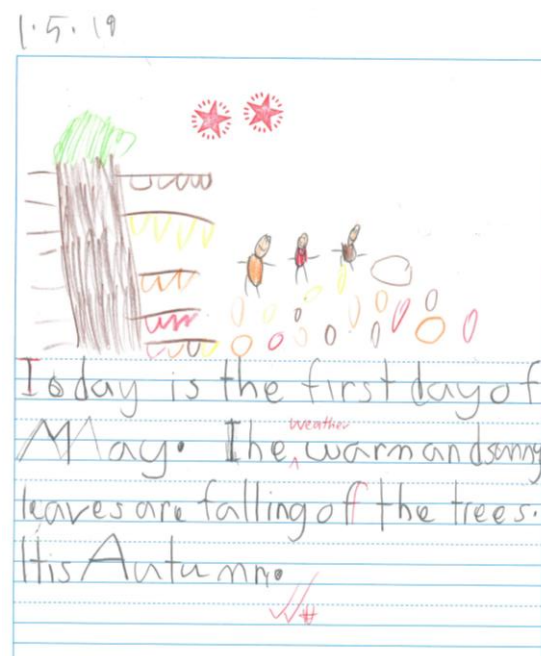 1.5.19
Today is the first day of
May. The warm and sunny
weather
leaves are falling off the trees.
It is Autumn.